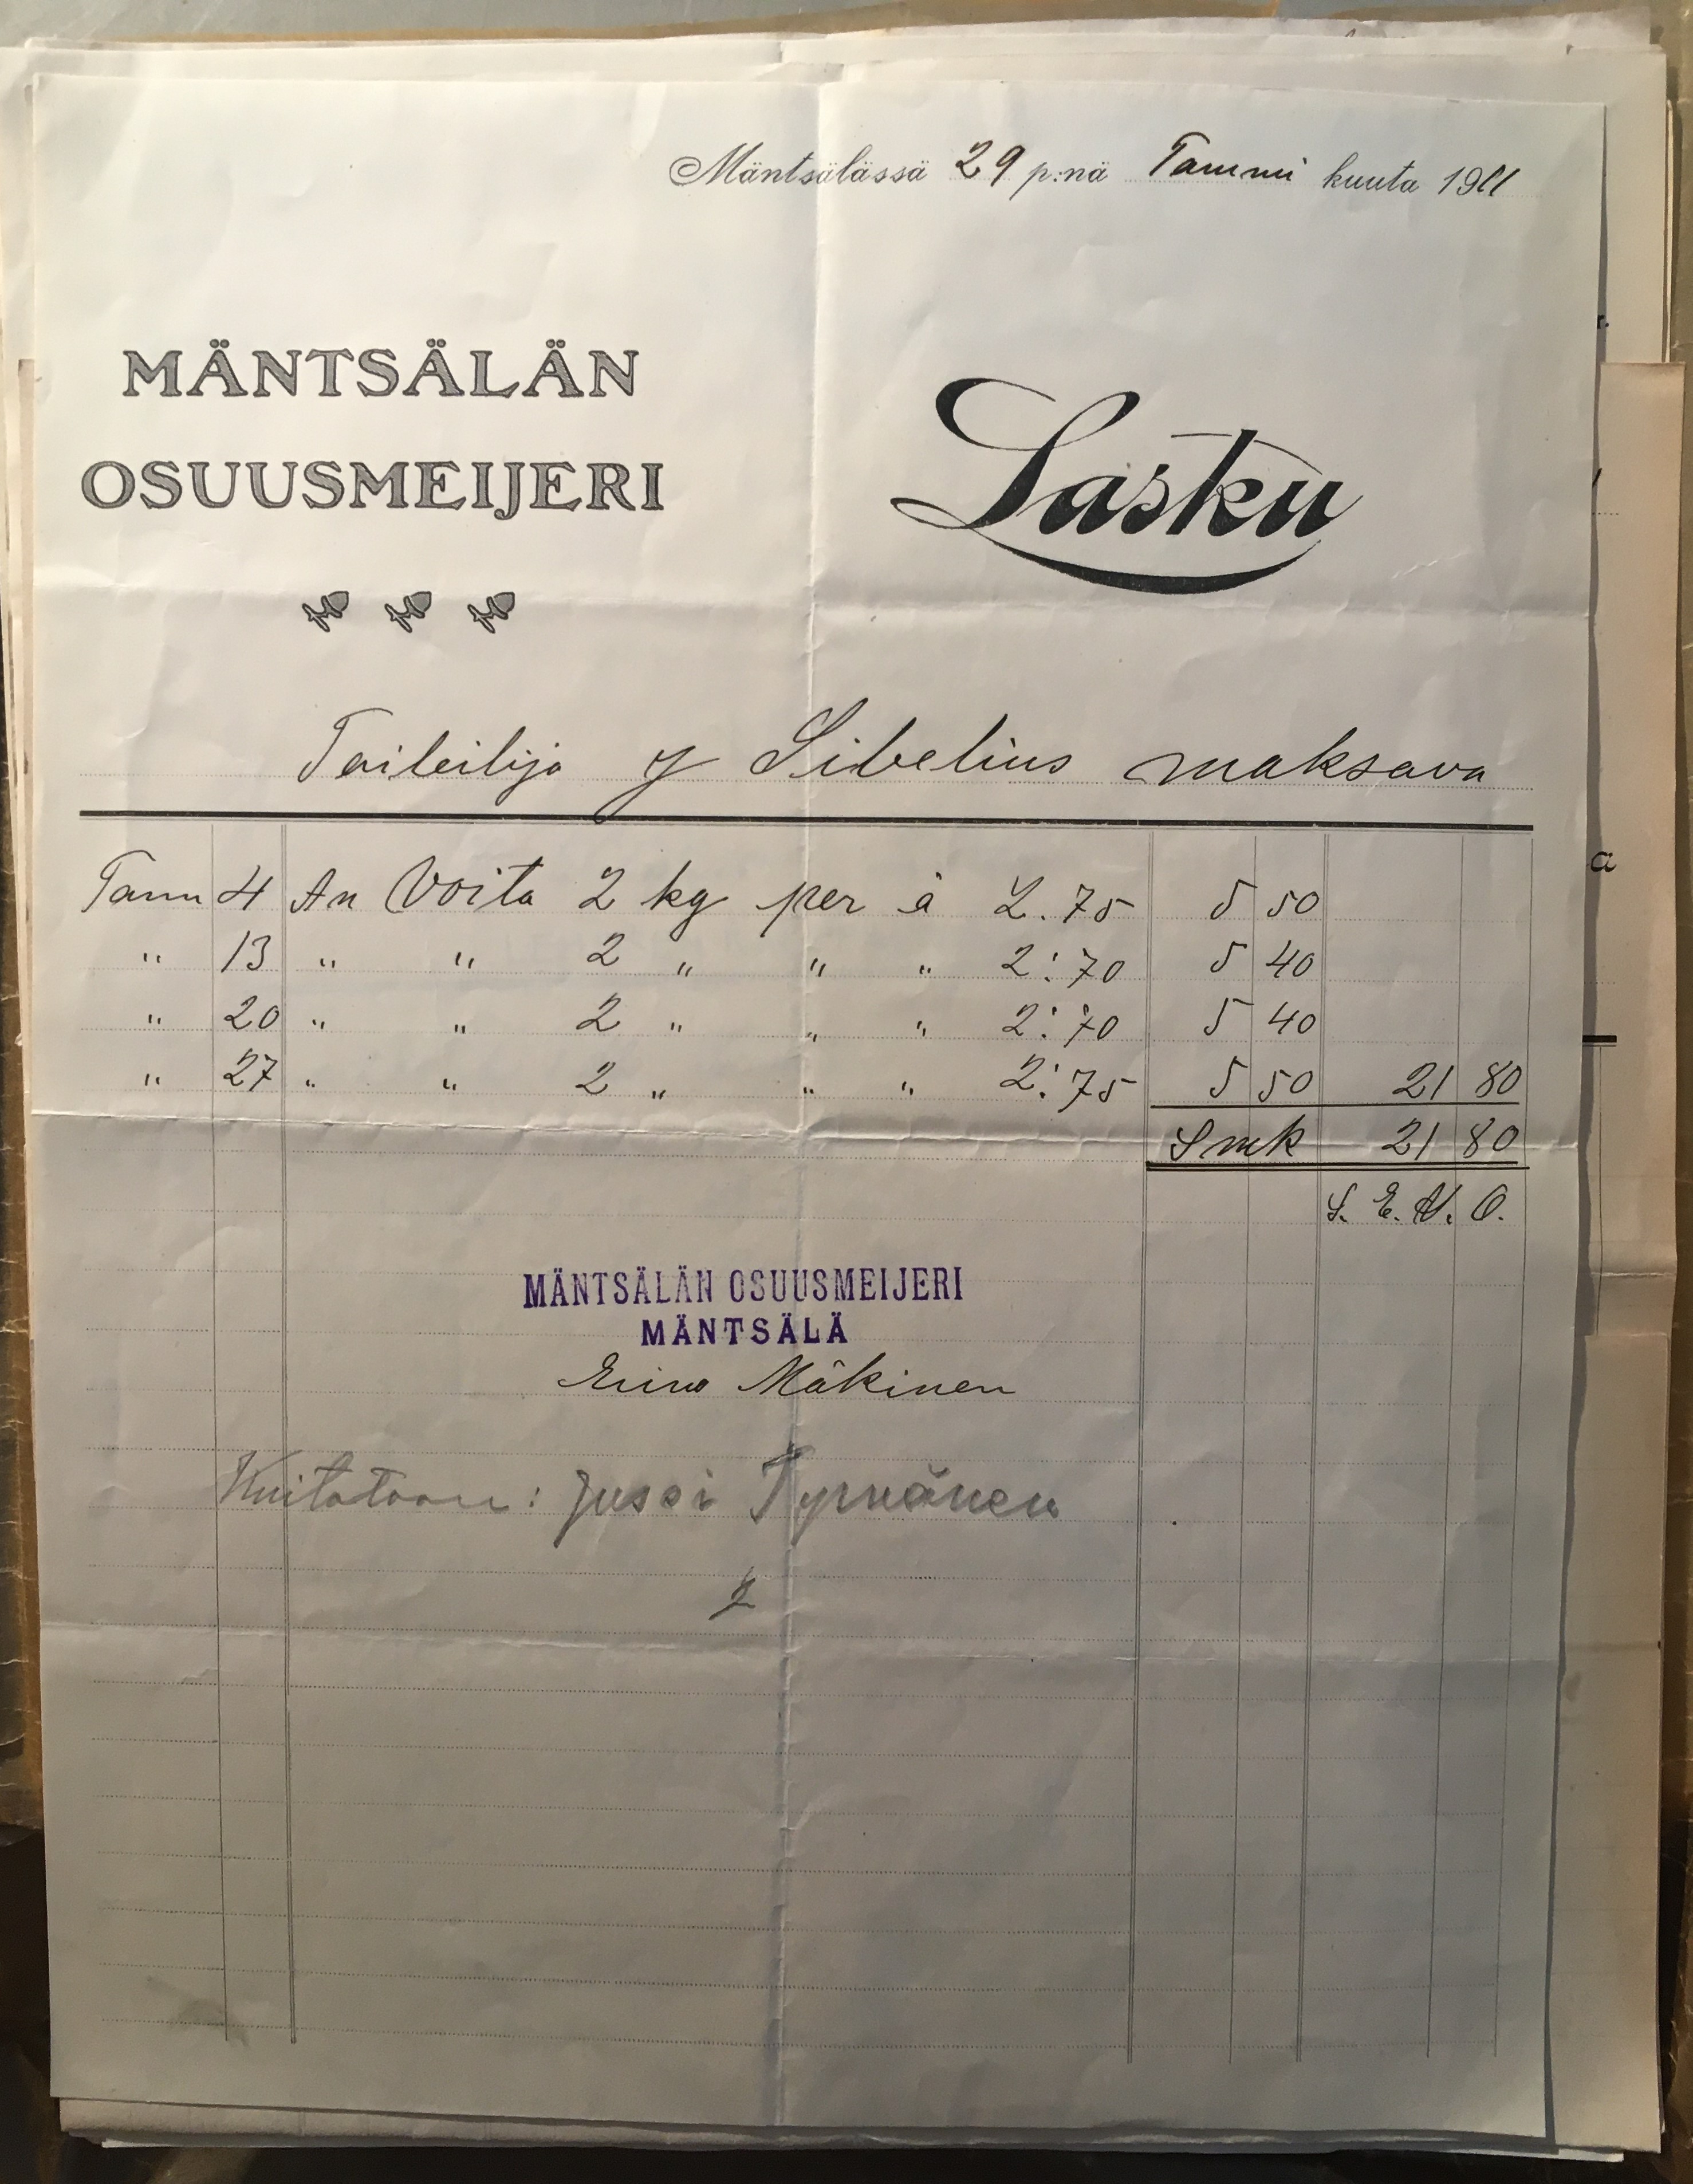 Mäntsälässä 29 p:nä Tammi kuuta 1911
MÄNTSÄLÄN
OSUUSMEIJERI
Lasku
Taileilija J Sibelius maksava
Tam 4 An Voita 2 kg per á 2.75 5 50
" 13 " " 2 " " " 2:70 5 40
" 20 " " 2 " " " 2:70 5 40
" 27 " " 2 " " " 2:75 5 50 21 80
Smk 21 80
S. E. & O.
MÄNTSÄLÄN OSUUSMEIJERI
MÄNTSÄLÄ
Eino Mäkinen
Kuitataan: Jussi Tyrvänen